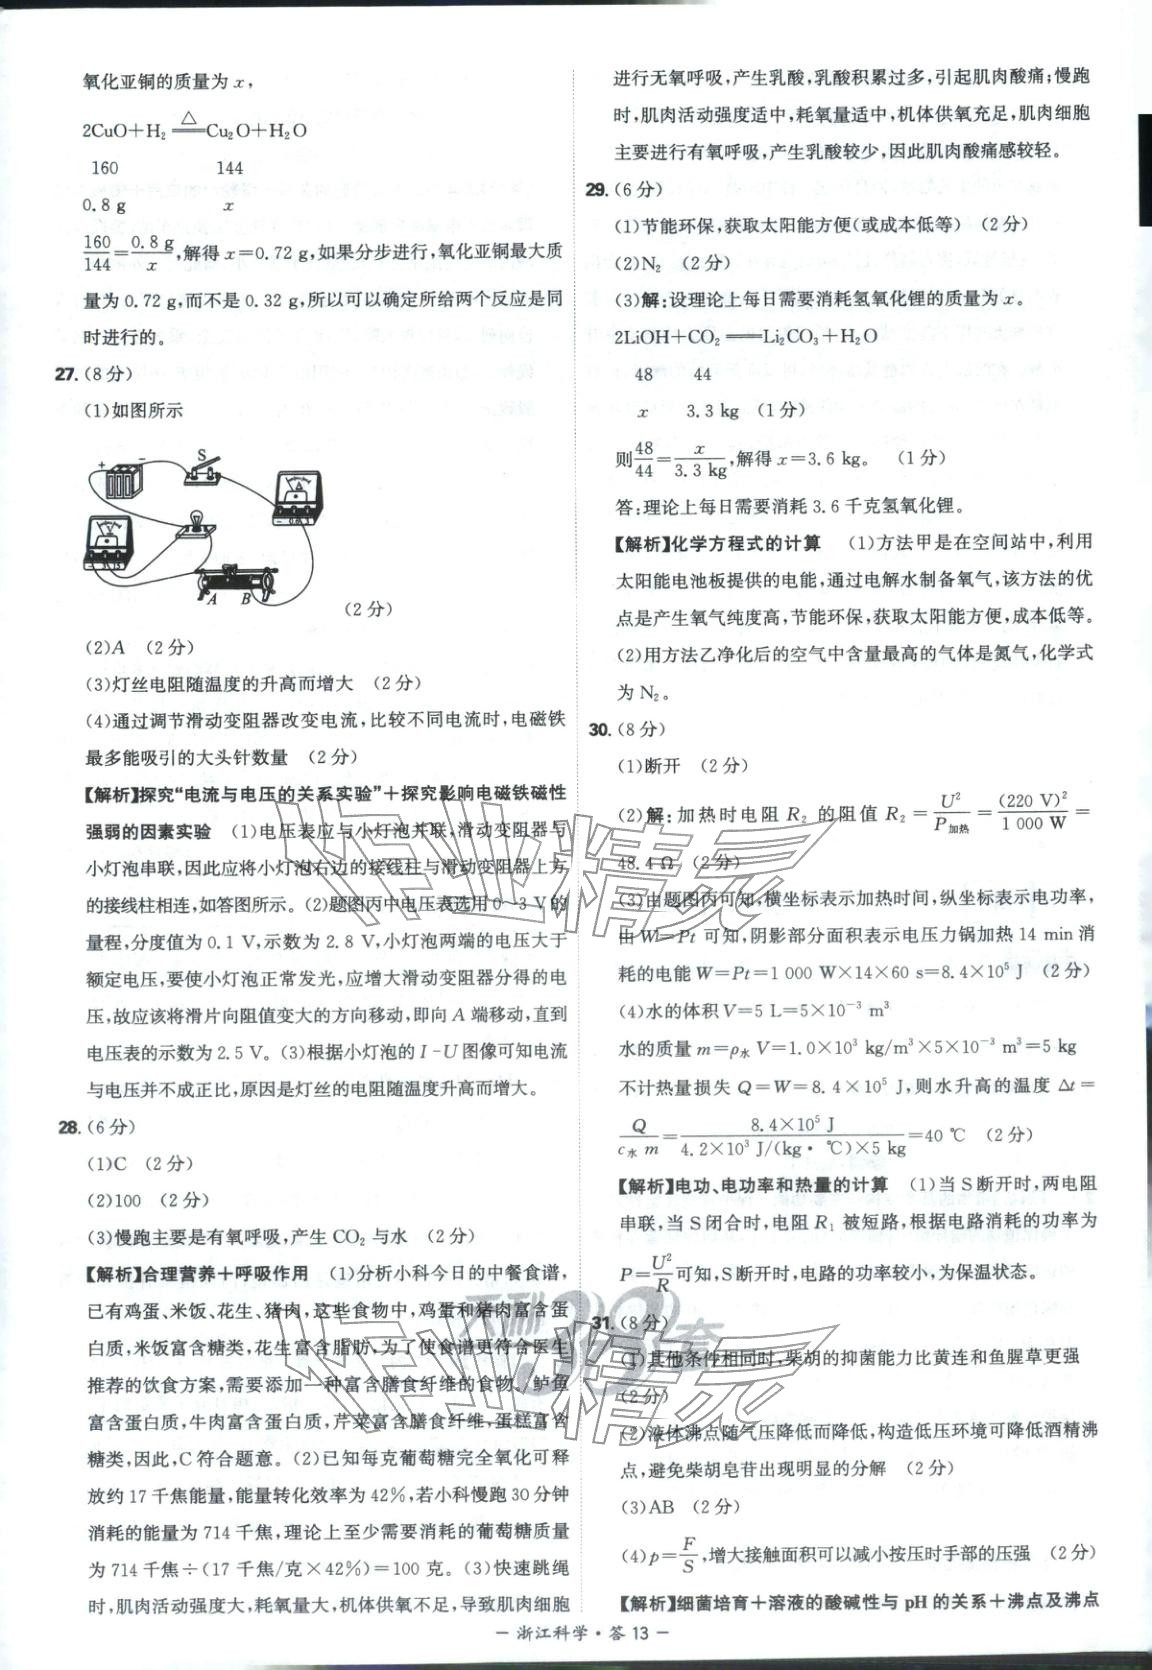 氧化亚铜的质量为 x，
2CuO+H₂ =△= Cu₂O+H₂O
160 144
0.8 g x
160/144=0.8 g/x，解得 x=0.72 g，如果分步进行，氧化亚铜最大质
量为 0.72 g，而不是 0.32 g，所以可以确定所给两个反应是同
时进行的。
27.(8 分)
(1)如图所示
+ - S
A B
(2 分)
(2)A (2 分)
(3)灯丝电阻随温度的升高而增大 (2 分)
(4)通过调节滑动变阻器改变电流，比较不同电流时，电磁铁
最多能吸引的大头针数量 (2 分)
【解析】探究“电流与电压的关系实验”＋探究影响电磁铁磁性
强弱的因素实验 (1)电压表应与小灯泡并联，滑动变阻器与
小灯泡串联，因此应将小灯泡右边的接线柱与滑动变阻器上方
的接线柱相连，如答图所示。(2)题图丙中电压表选用 0~3 V 的
量程，分度值为 0.1 V，示数为 2.8 V，小灯泡两端的电压大于
额定电压，要使小灯泡正常发光，应增大滑动变阻器分得的电
压，故应该将滑片向阻值变大的方向移动，即向 A 端移动，直到
电压表的示数为 2.5 V。(3)根据小灯泡的 I-U 图像可知电流
与电压并不成正比，原因是灯丝的电阻随温度升高而增大。
28.(6 分)
(1)C (2 分)
(2)100 (2 分)
(3)慢跑主要是有氧呼吸，产生 CO₂ 与水 (2 分)
【解析】合理营养＋呼吸作用 (1)分析小科今日的中餐食谱，
已有鸡蛋、米饭、花生、猪肉，这些食物中，鸡蛋和猪肉富含蛋
白质，米饭富含糖类，花生富含脂肪，为了使食谱更符合医生
推荐的饮食方案，需要添加一种富含膳食纤维的食物。鲈鱼
富含蛋白质，牛肉富含蛋白质，芹菜富含膳食纤维，蛋糕富含
糖类，因此，C 符合题意。(2)已知每克葡萄糖完全氧化可释
放约 17 千焦能量，能量转化效率为 42%，若小科慢跑 30 分钟
消耗的能量为 714 千焦，理论上至少需要消耗的葡萄糖质量
为 714 千焦÷(17 千焦/克×42%)=100 克。(3)快速跳绳
时，肌肉活动强度大，耗氧量大，机体供氧不足，导致肌肉细胞
进行无氧呼吸，产生乳酸，乳酸积累过多，引起肌肉酸痛；慢跑
时，肌肉活动强度适中，耗氧量适中，机体供氧充足，肌肉细胞
主要进行有氧呼吸，产生乳酸较少，因此肌肉酸痛感较轻。
29.(6 分)
(1)节能环保，获取太阳能方便(或成本低等) (2 分)
(2)N₂ (2 分)
(3)解：设理论上每日需要消耗氢氧化锂的质量为 x。
2LiOH+CO₂══Li₂CO₃+H₂O
48 44
x 3.3 kg (1 分)
则48/44=x/3.3 kg，解得 x=3.6 kg。 (1 分)
答：理论上每日需要消耗 3.6 千克氢氧化锂。
【解析】化学方程式的计算 (1)方法甲是在空间站中，利用
太阳能电池板提供的电能，通过电解水制备氧气，该方法的优
点是产生氧气纯度高，节能环保，获取太阳能方便，成本低等。
(2)用方法乙净化后的空气中含量最高的气体是氮气，化学式
为 N₂。
30.(8 分)
(1)断开 (2 分)
(2)解：加热时电阻 R₂ 的阻值 R₂=U²/P加热=(220 V)²/1 000 W=
48.4 Ω (2 分)
(3)由题图丙可知，横坐标表示加热时间，纵坐标表示电功率，
由 W=Pt 可知，阴影部分面积表示电压力锅加热 14 min 消
耗的电能 W=Pt=1 000 W×14×60 s=8.4×10⁵ J (2 分)
(4)水的体积 V=5 L=5×10⁻³ m³
水的质量 m=ρ水 V=1.0×10³ kg/m³×5×10⁻³ m³=5 kg
不计热量损失 Q=W=8.4×10⁵ J，则水升高的温度 Δt=
Q/c水 m=8.4×10⁵ J/4.2×10³ J/(kg·℃)×5 kg=40 ℃ (2 分)
【解析】电功、电功率和热量的计算 (1)当 S 断开时，两电阻
串联，当 S 闭合时，电阻 R₁ 被短路，根据电路消耗的功率为
P=U²/R可知，S 断开时，电路的功率较小，为保温状态。
31.(8 分)
(1)其他条件相同时，柴胡的抑菌能力比黄连和鱼腥草更强
(2 分)
(2)液体沸点随气压降低而降低，构造低压环境可降低酒精沸
点，避免柴胡皂苷出现明显的分解 (2 分)
(3)AB (2 分)
(4)p=F/S，增大接触面积可以减小按压时手部的压强 (2 分)
【解析】细菌培育＋溶液的酸碱性与 pH 的关系＋沸点及沸点
－ 浙江科学·答 13 －
作业精灵
天利38套
作业精灵